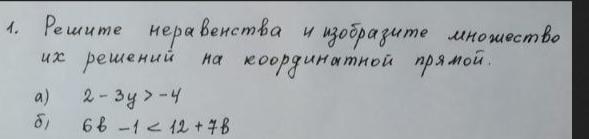 1. Решите неравенства и изобразите множество
их решений на координатной прямой.
а) 2 - 3y > -4
б) 6в - 1 < 12 + 7в